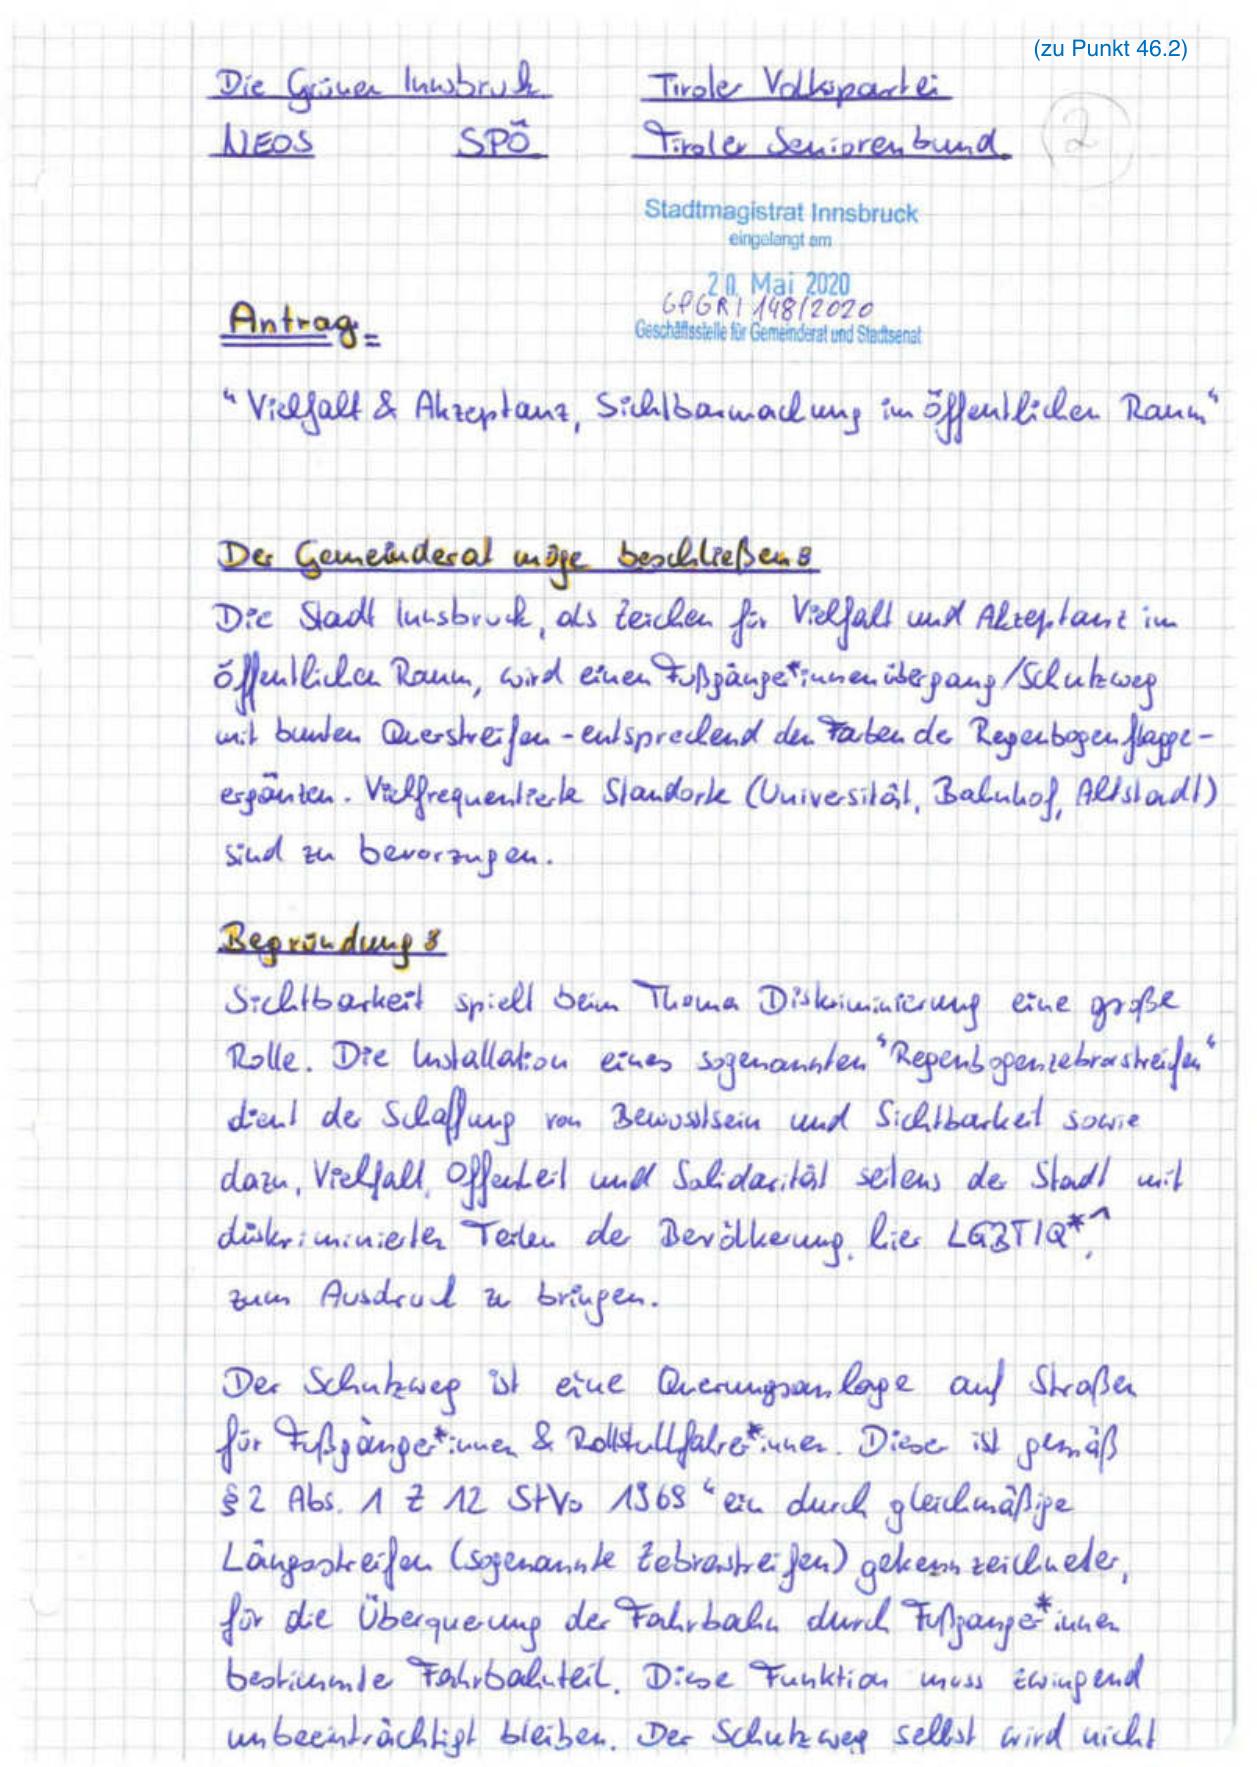 (zu Punkt 46.2)
Die Grünen Innsbruck Tiroler Volkspartei
NEOS SPÖ Tiroler Seniorenbund
2
Stadtmagistrat Innsbruck
eingelangt am
20. Mai 2020
GfGR/148/2020
Geschäftsstelle für Gemeinderat und Stadtsenat
Antrag:
"Vielfalt & Akzeptanz, Sichtbarmachung im öffentlichen Raum"
Der Gemeinderat möge beschließen:
Die Stadt Innsbruck, als Zeichen für Vielfalt und Akzeptanz im
öffentlichen Raum, wird einen Fußgänger*innenübergang/Schutzweg
mit bunten Querstreifen - entsprechend den Farben der Regenbogenflagge -
ergänzen. Vielfrequentierte Standorte (Universität, Bahnhof, Altstadt)
sind zu bevorzugen.
Begründung:
Sichtbarkeit spielt beim Thema Diskriminierung eine große
Rolle. Die Installation eines sogenannten "Regenbogenzebrastreifen"
dient der Schaffung von Bewusstsein und Sichtbarkeit sowie
dazu, Vielfalt, Offenheit und Solidarität seitens der Stadt mit
diskriminierten Teilen der Bevölkerung, hier LGBTIQ*¹,
zum Ausdruck zu bringen.
Der Schutzweg ist eine Querungsanlage auf Straßen
für Fußgänger*innen & Rollstuhlfahrer*innen. Dieser ist gemäß
§2 Abs. 1 Z 12 StVO 1969 "ein durch gleichmäßige
Längsstreifen (sogenannte Zebrastreifen) gekennzeichneter,
für die Überquerung der Fahrbahn durch Fußgänger*innen
bestimmte Fahrbahnteil. Diese Funktion muss zwingend
unbeeinträchtigt bleiben. Der Schutzweg selbst wird nicht